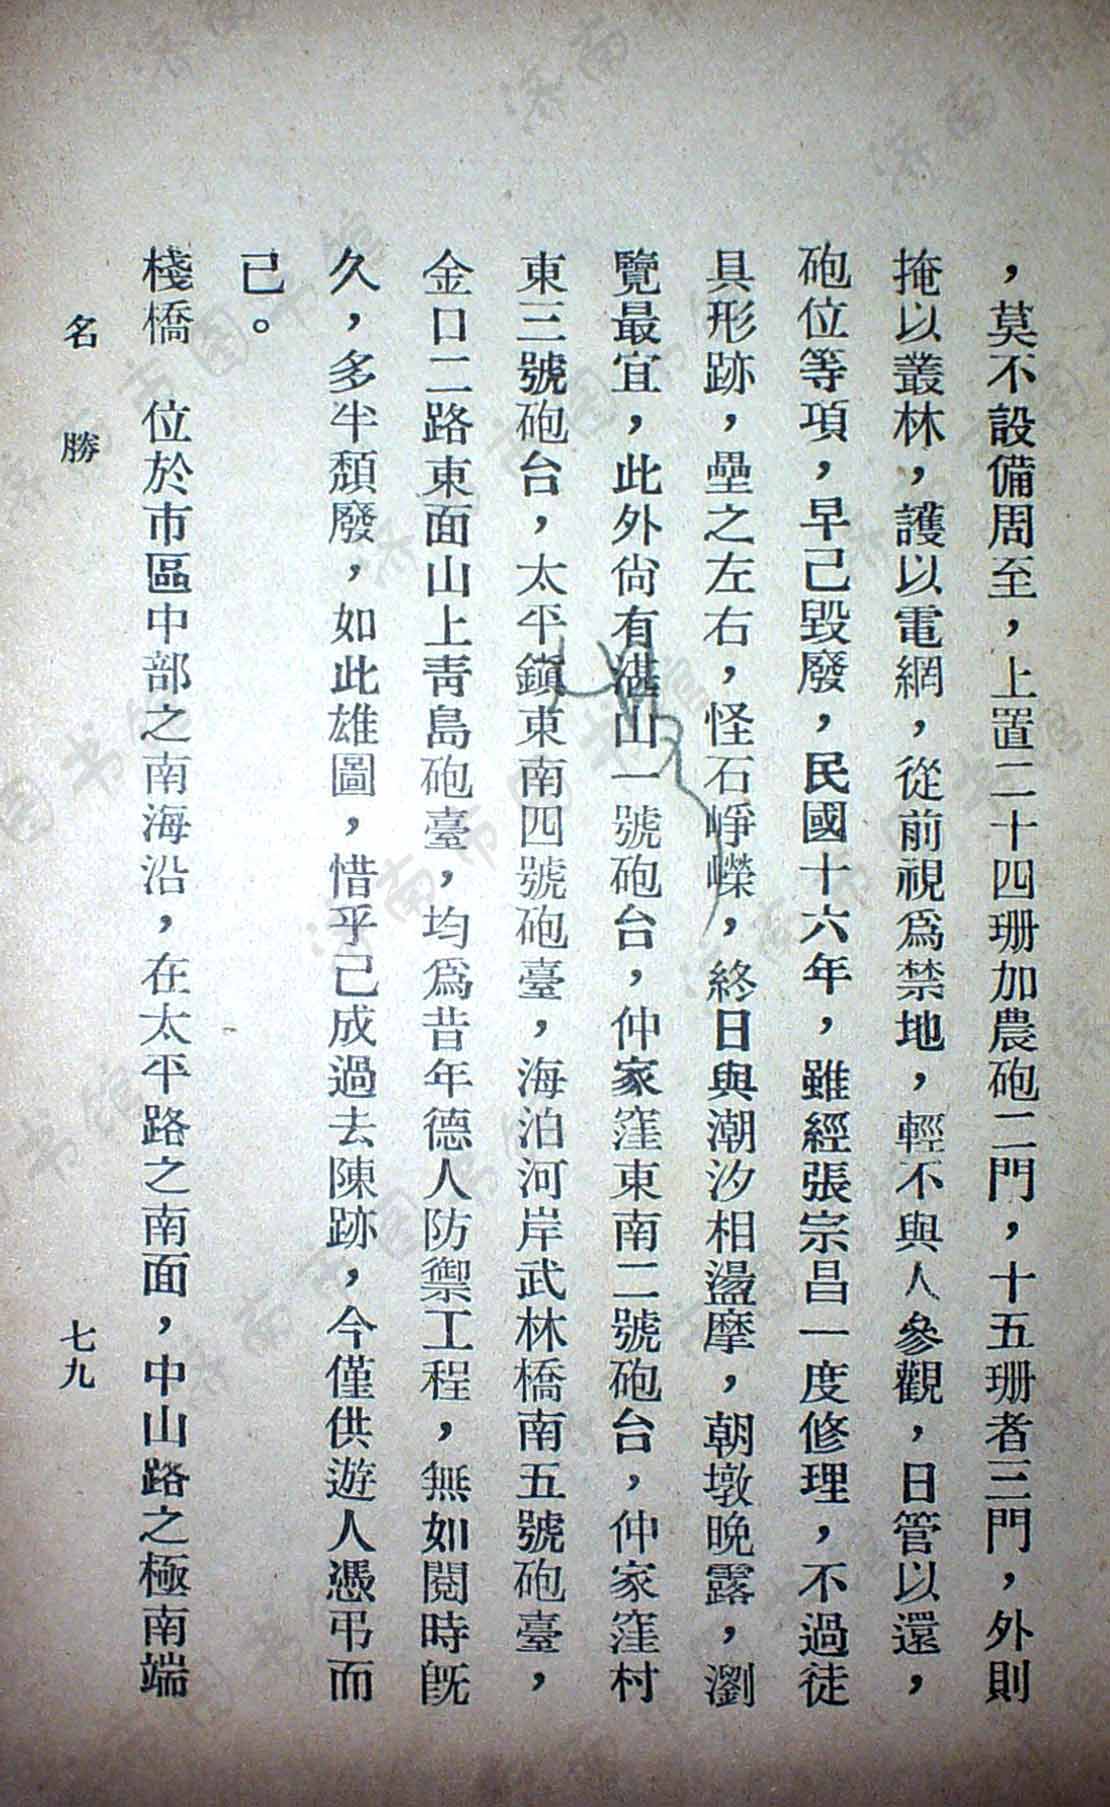 ，莫不設備周至，上置二十四珊加農砲二門，十五珊者三門，外則
掩以叢林，護以電網，從前視爲禁地，輕不與人參觀，日管以還，
砲位等項，早已毀廢，民國十六年，雖經張宗昌一度修理，不過徒
具形跡，壘之左右，怪石崢嶸，終日與潮汐相盪摩，朝墩晚露，瀏
覽最宜，此外尙有湛山一號砲台，仲家窪東南二號砲台，仲家窪村
東三號砲台，太平鎭東南四號砲臺，海泊河岸武林橋南五號砲臺，
金口二路東面山上靑島砲臺，均爲昔年德人防禦工程，無如閱時旣
久，多半頹廢，如此雄圖，惜乎已成過去陳跡，今僅供遊人憑弔而
已。
棧橋　位於市區中部之南海沿，在太平路之南面，中山路之極南端
名勝
七九
济南市图书馆